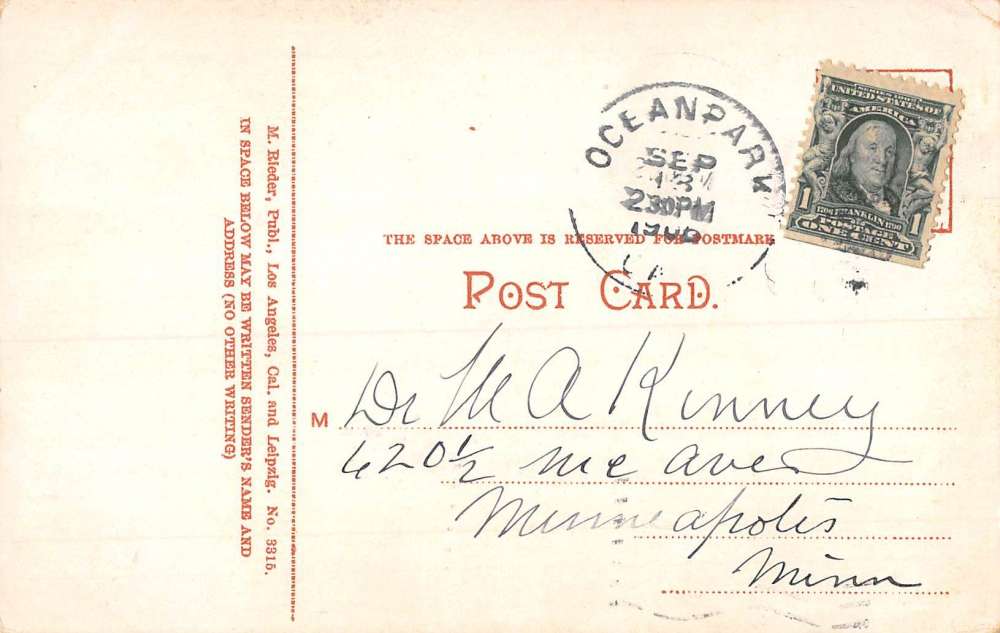 M. Rieder, Publ., Los Angeles, Cal. and Leipzig. No. 3315.
IN SPACE BELOW MAY BE WRITTEN SENDER'S NAME AND
ADDRESS (NO OTHER WRITING)
OCEANPARK
SEP
13
230PM
CAL
SERIES 1902
UNITED STATES OF
AMERICA
1 1
1706 FRANKLIN 1790
POSTAGE
ONE CENT
THE SPACE ABOVE IS RESERVED FOR POSTMARK
POST CARD.
M Dr M A Kinney
620½ Ave
Minneapolis
Minn